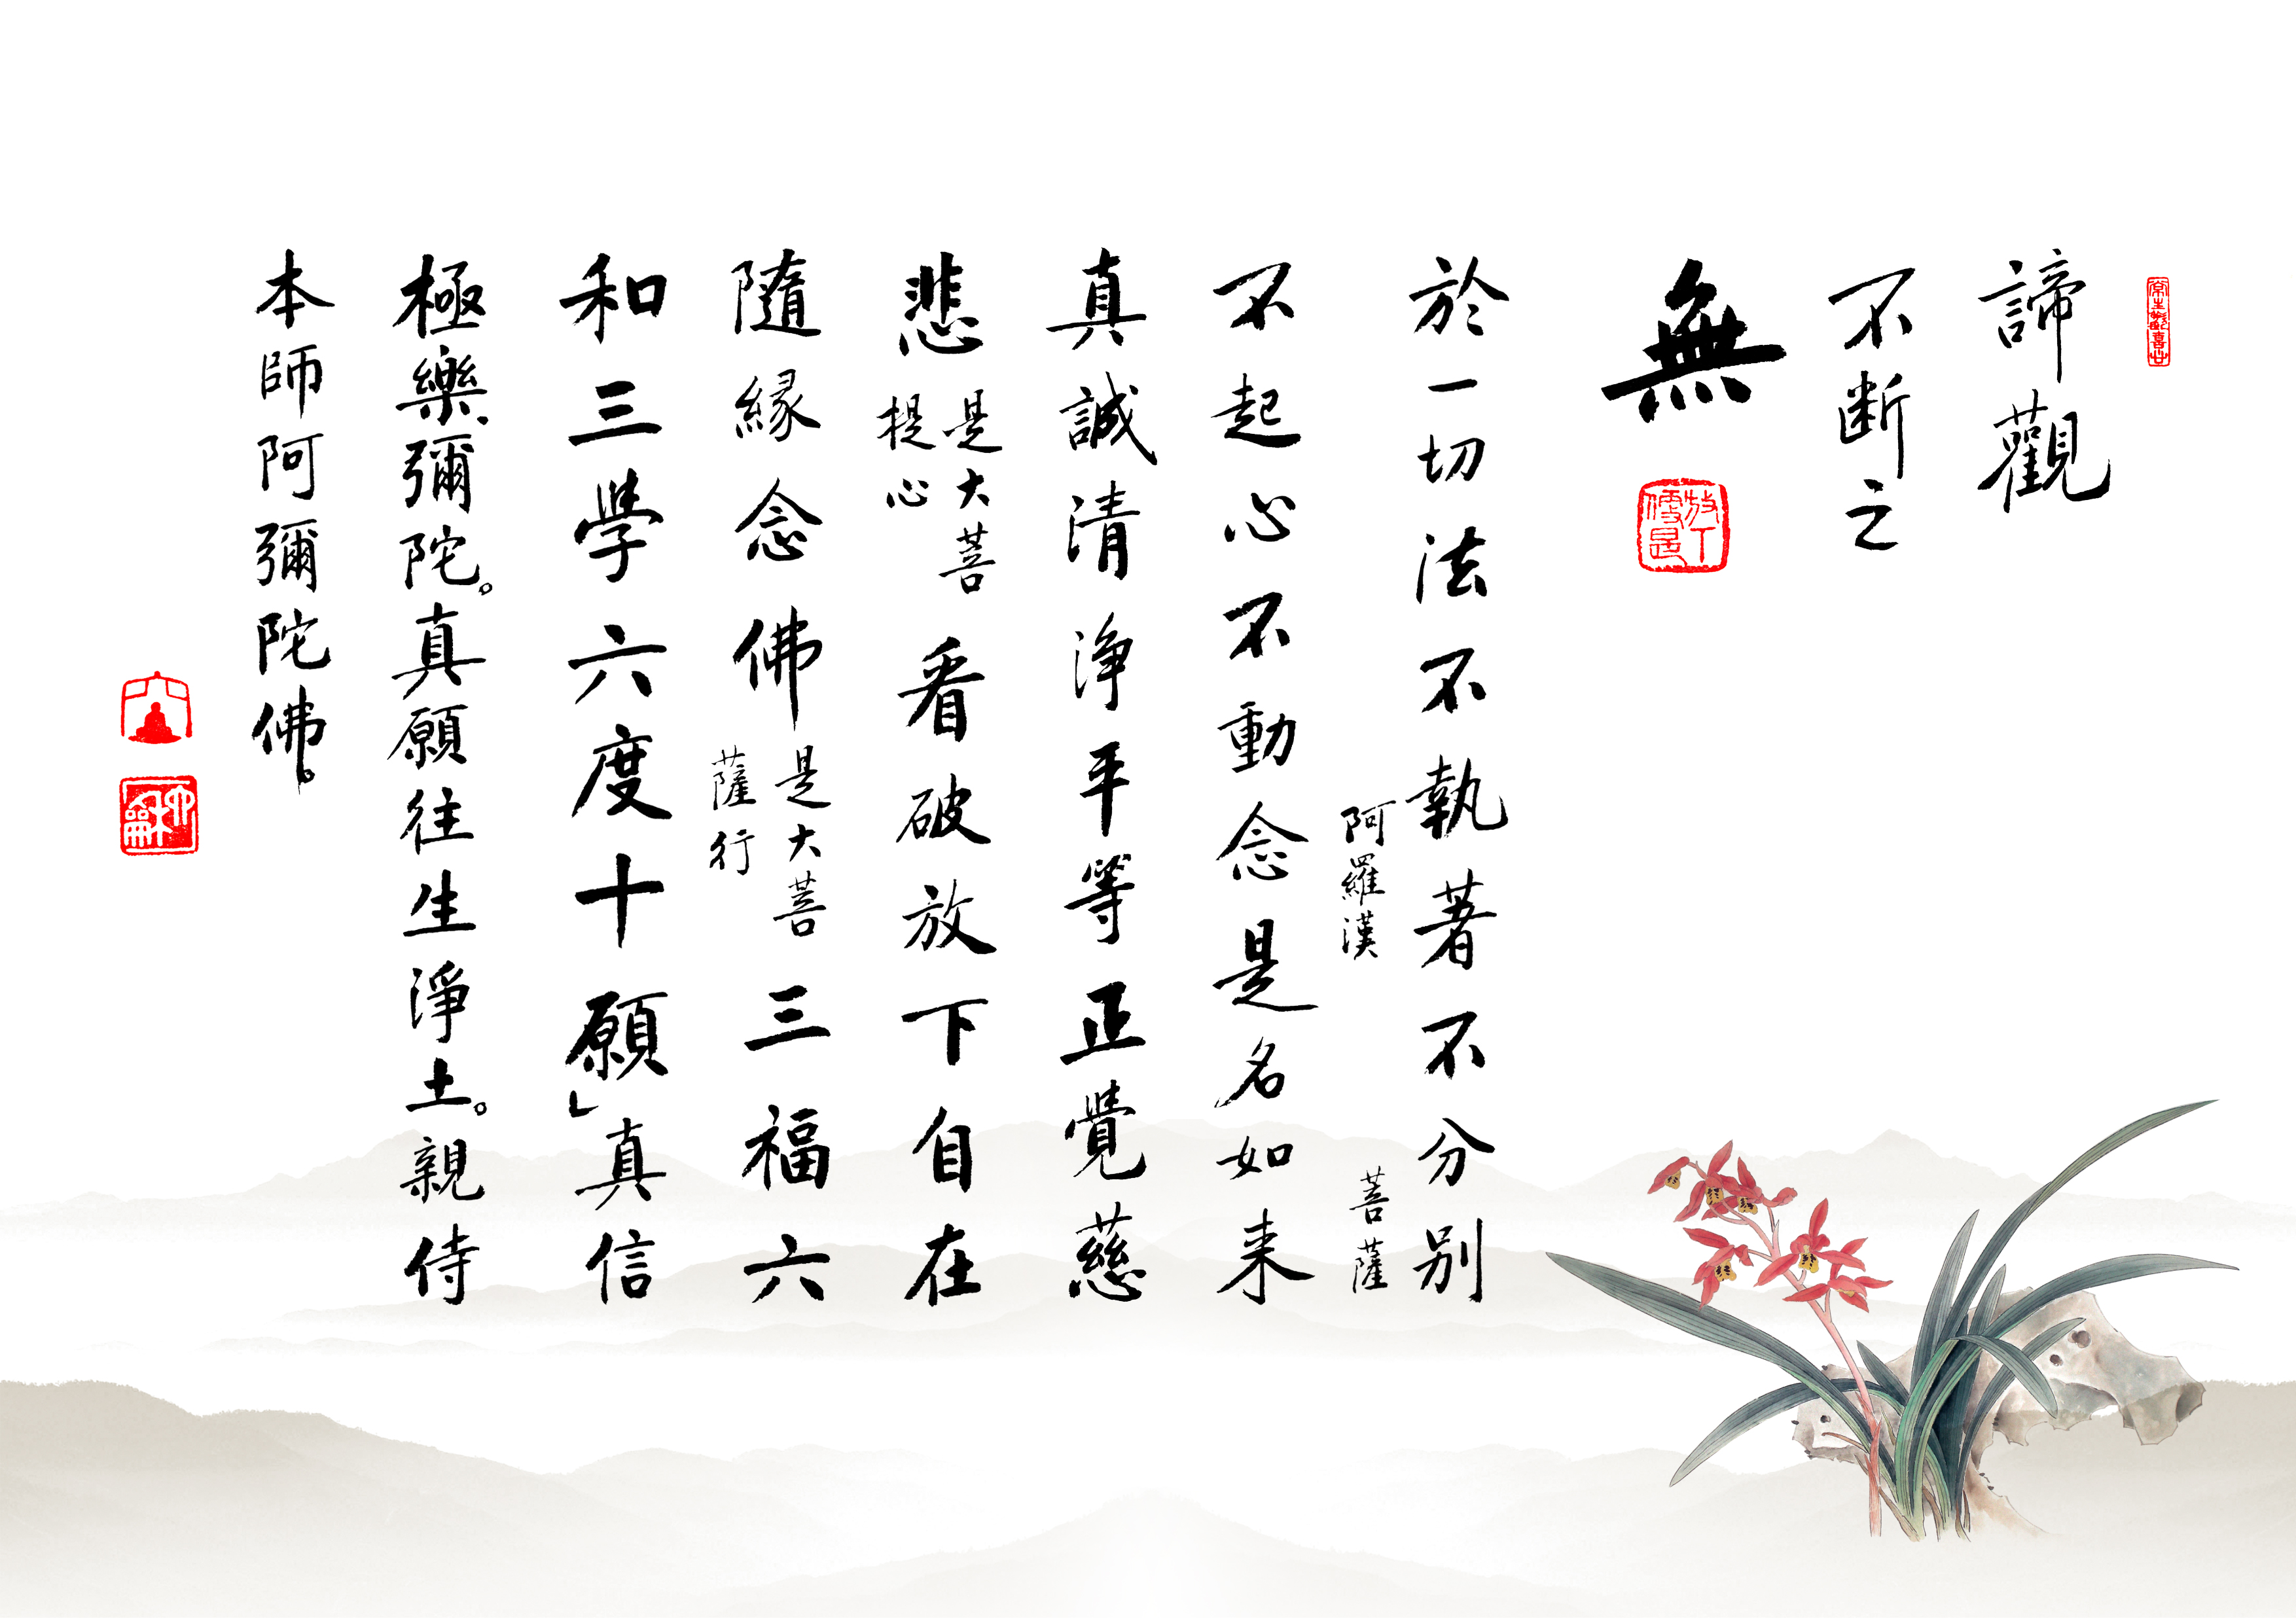 諦觀
不断之
無
於一切法不執著不分別
阿羅漢
菩薩
不起心不動念是名如来
真誠清淨平等正覺慈
悲
是大菩
提心
看破放下自在
隨緣念佛
是大菩
薩行
三福六
和三學六度十願」真信
極樂、彌陀。真願往生淨土。親侍
本師阿彌陀佛。